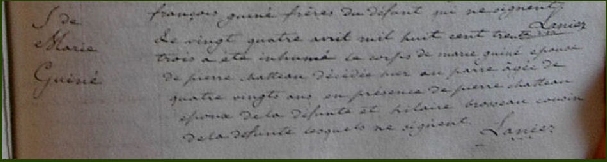 S. de
Marie
Guiné
françois guiné frères du défunt qui ne signent
Lanier
Le vingt quatre avril mil huit cent trente
trois a été inhumé le corps de marie guiné epouse
de pierre chatteau décédée hier au paire âgée de
quatre vingts ans en présence de pierre chatteau
epoux de la défunte et hilaire brosseau cousin
de la défunte lesquels ne signent.
Lanier